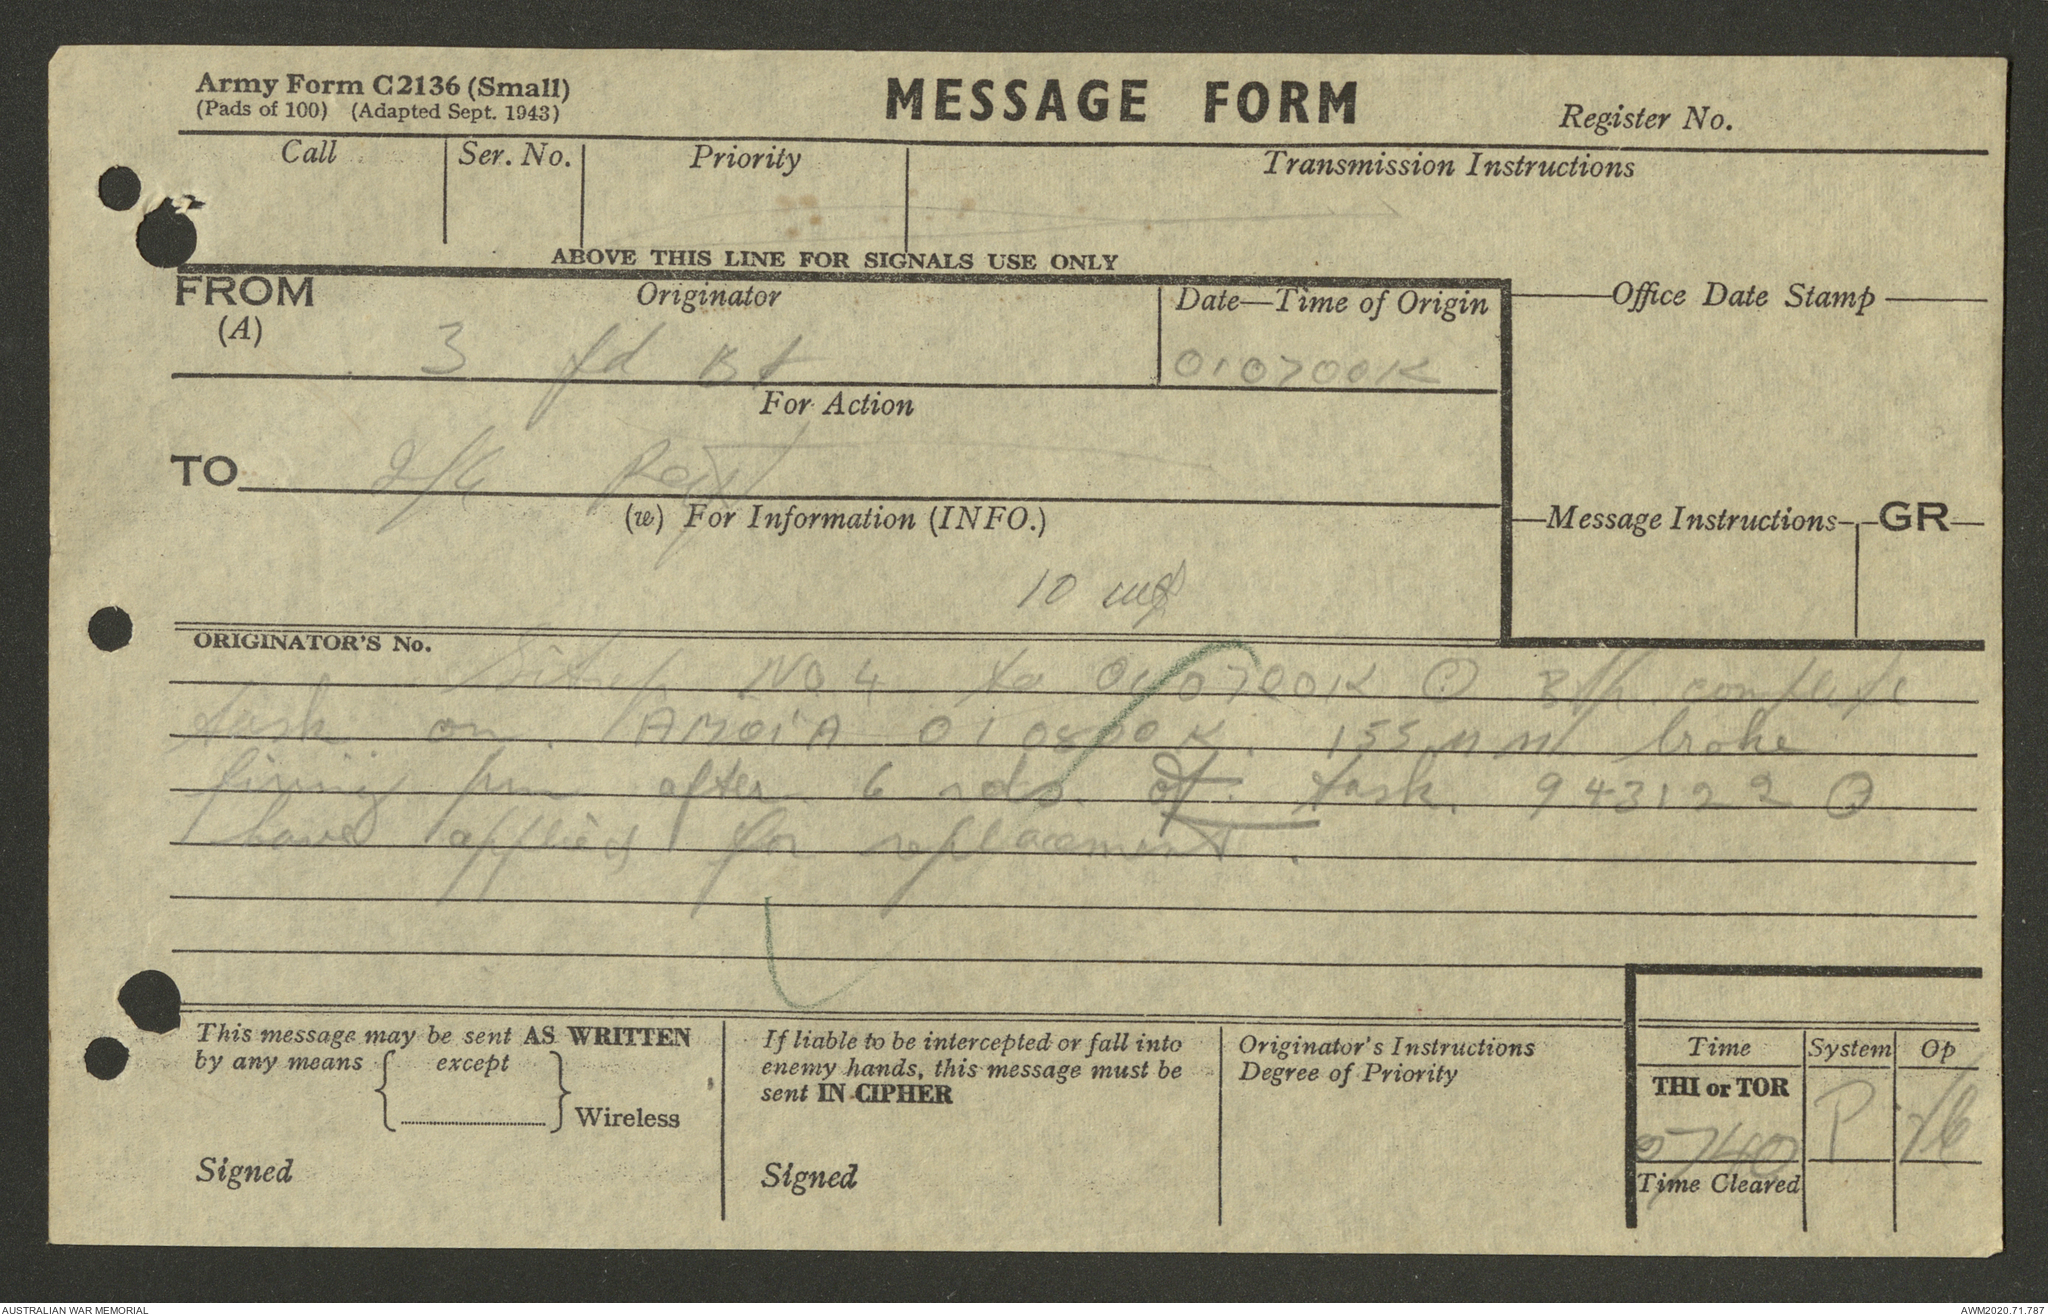 Army Form C2136 (Small)
(Pads of 100) (Adapted Sept. 1943)
MESSAGE FORM
Register No.
Call Ser. No. Priority Transmission Instructions
ABOVE THIS LINE FOR SIGNALS USE ONLY
FROM Originator Date—Time of Origin Office Date Stamp
(A)
3 fd Bt 010700K
For Action
TO 2/6 Regt
(w) For Information (INFO.)
Message Instructions GR
10
ORIGINATOR'S No.
Sitrep No 4 to 010700K Bty complete
task on 010800K. 155 MM broke
firing pin after 6 rds. of task. 943122
have applied for replacement.
This message may be sent AS WRITTEN
by any means except
Wireless
Signed
If liable to be intercepted or fall into
enemy hands, this message must be
sent IN CIPHER
Signed
Originator's Instructions
Degree of Priority
Time System Op
THI or TOR
0740 P
Time Cleared
AUSTRALIAN WAR MEMORIAL
AWM2020.71.787